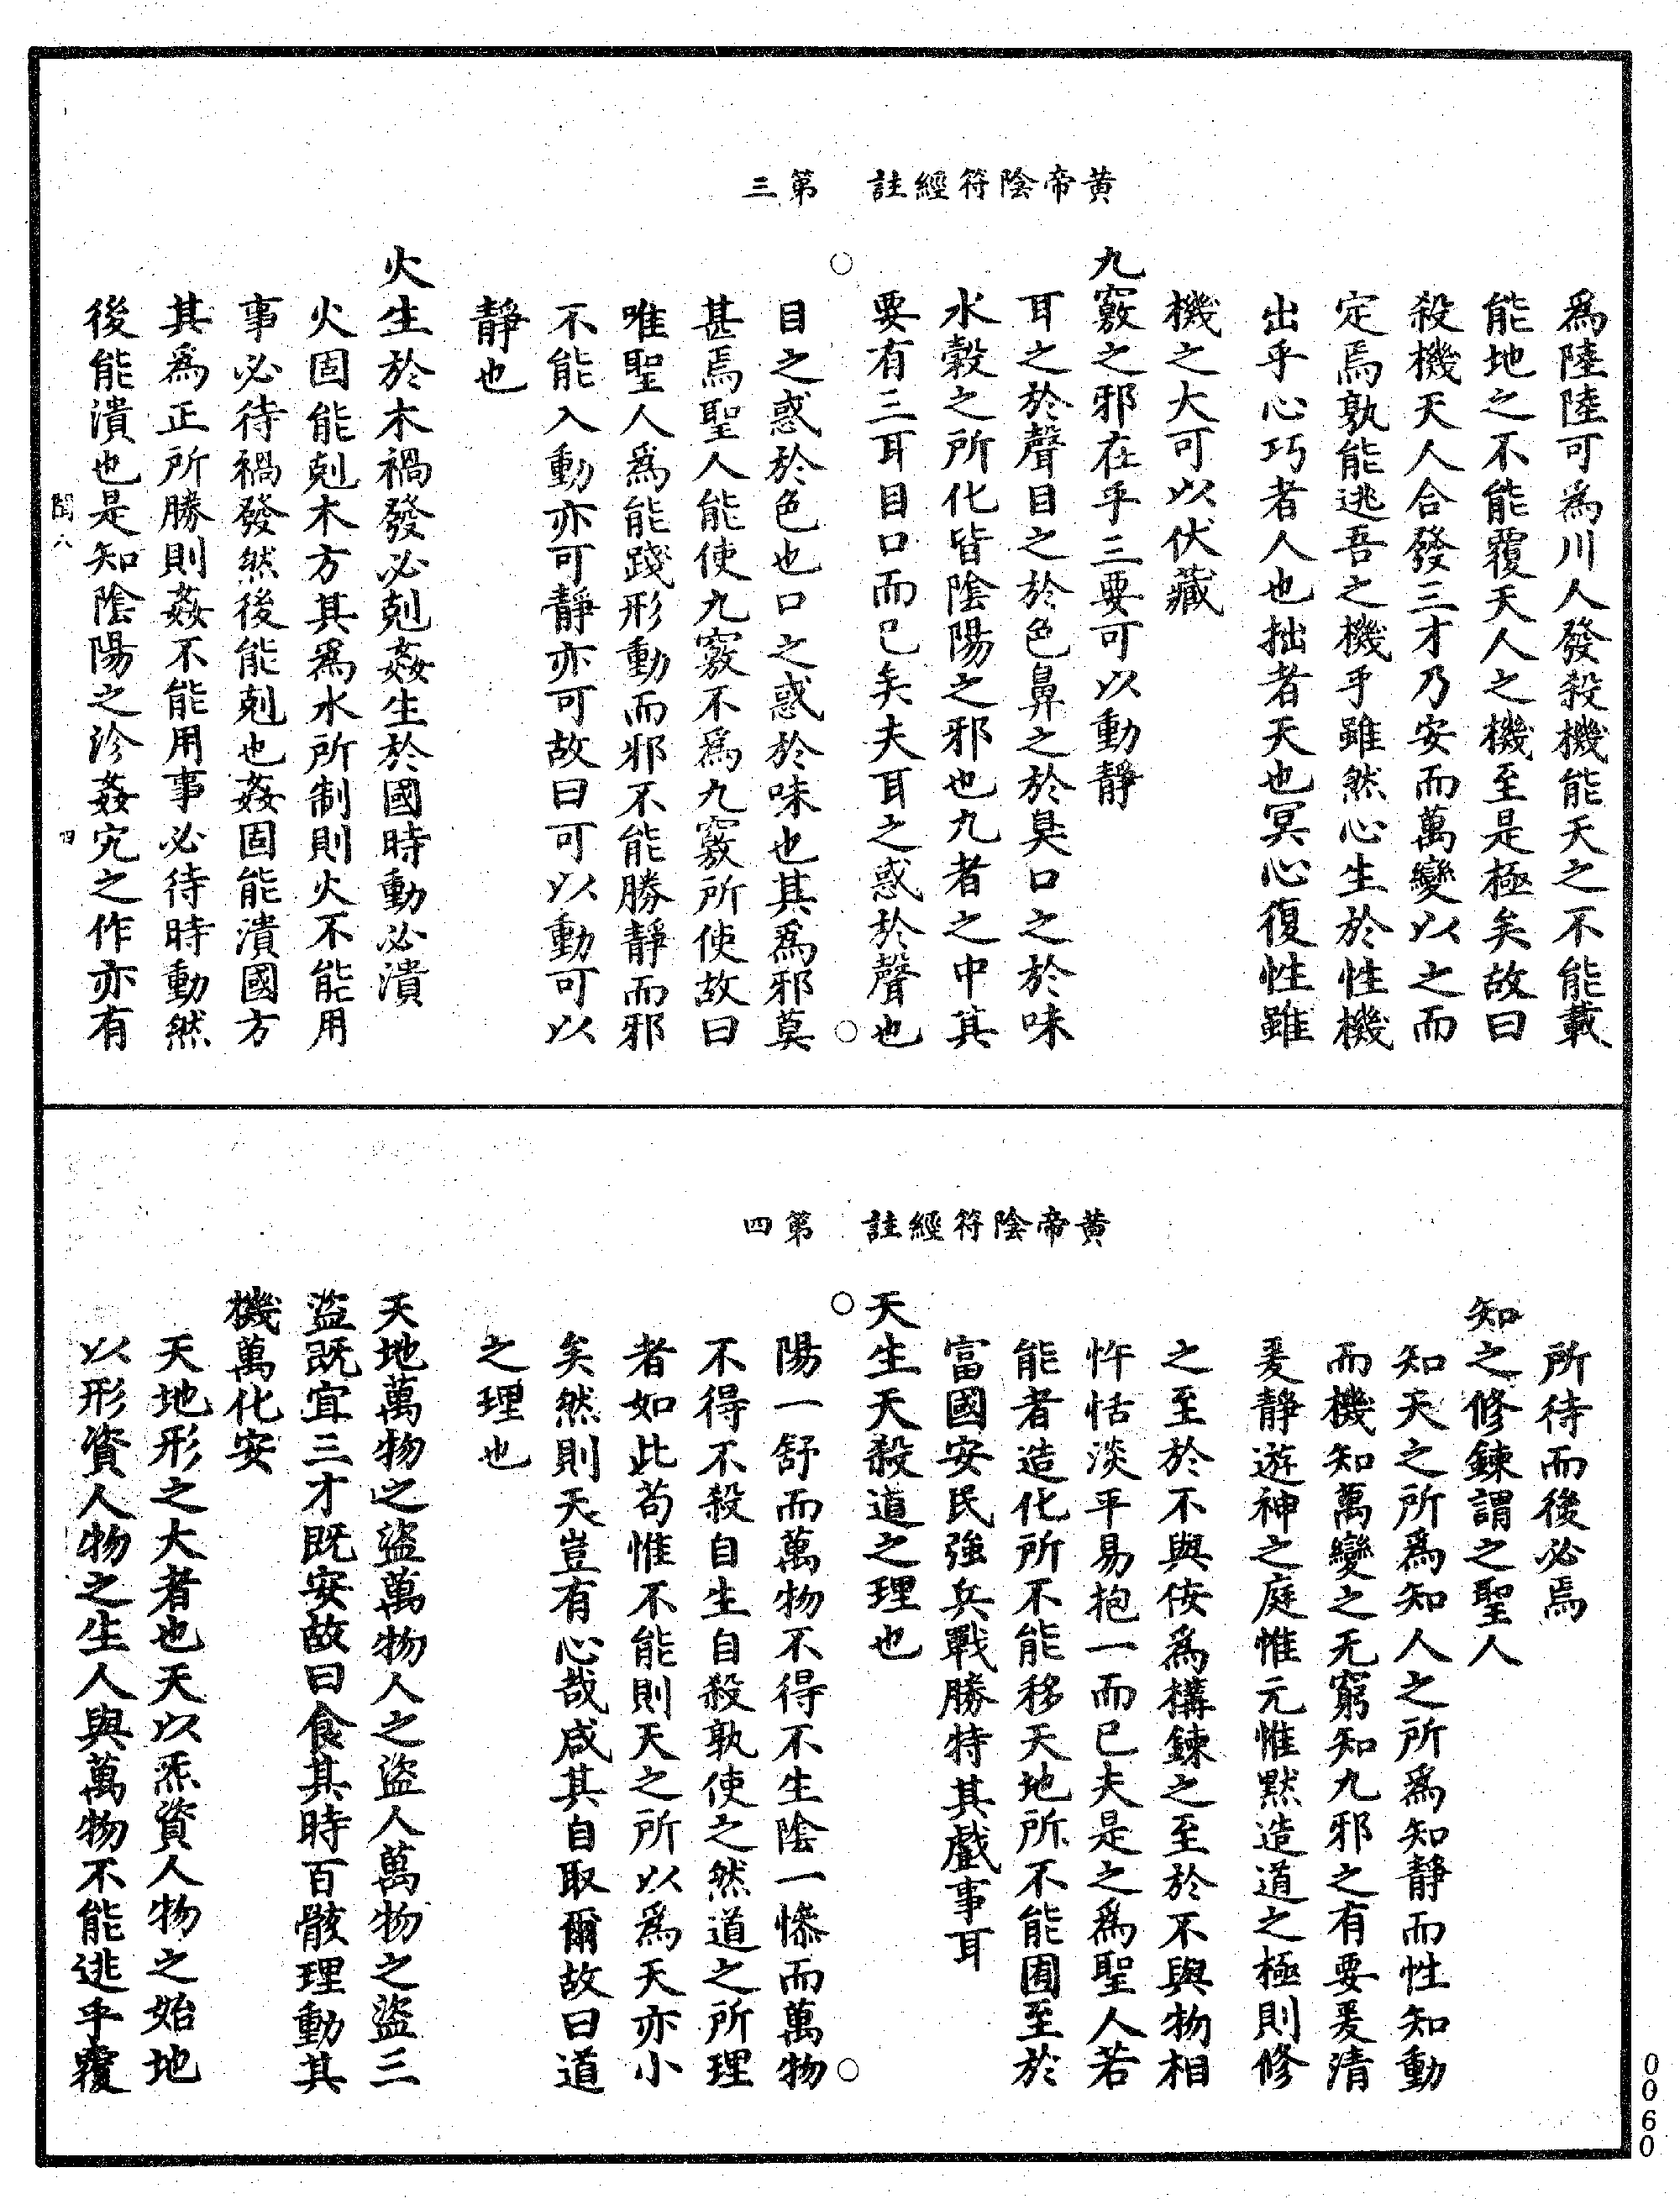 黄帝陰符經註　第三
爲陸陸可爲川人發殺機能天之不能載
能地之不能覆天人之機至是極矣故曰
殺機天人合發三才乃安而萬變以之而
定焉孰能逃吾之機乎雖然心生於性機
出乎心巧者人也拙者天也冥心復性雖
機之大可以伏藏
九竅之邪在乎三要可以動靜
耳之於聲目之於色鼻之於臭口之於味
水穀之所化皆陰陽之邪也九者之中其
要有三耳目口而已矣夫耳之惑於聲也
目之惑於色也口之惑於味也其爲邪莫
甚焉聖人能使九竅不爲九竅所使故曰
唯聖人爲能踐形動而邪不能勝靜而邪
不能入動亦可靜亦可故曰可以動可以
靜也
火生於木禍發必剋姦生於國時動必潰
火固能剋木方其爲水所制則火不能用
事必待禍發然後能剋也姦固能潰國方
其爲正所勝則姦不能用事必待時動然
後能潰也是知陰陽之沴姦宄之作亦有
閏八
四
黄帝陰符經註　第四
所待而後必焉
知之修鍊謂之聖人
知天之所爲知人之所爲知靜而性知動
而機知萬變之无窮知九邪之有要爰清
爰靜遊神之庭惟元惟默造道之極則修
之至於不與侫爲構鍊之至於不與物相
忤恬淡平易抱一而已夫是之爲聖人若
能者造化所不能移天地所不能囿至於
富國安民強兵戰勝特其戲事耳
天生天殺道之理也
陽一舒而萬物不得不生陰一慘而萬物
不得不殺自生自殺孰使之然道之所理
者如此苟惟不能則天之所以爲天亦小
矣然則天豈有心哉咸其自取爾故曰道
之理也
天地萬物之盜萬物人之盜人萬物之盜三
盜既宜三才既安故曰食其時百骸理動其
機萬化安
天地形之大者也天以炁資人物之始地
以形資人物之生人與萬物不能逃乎覆
0060